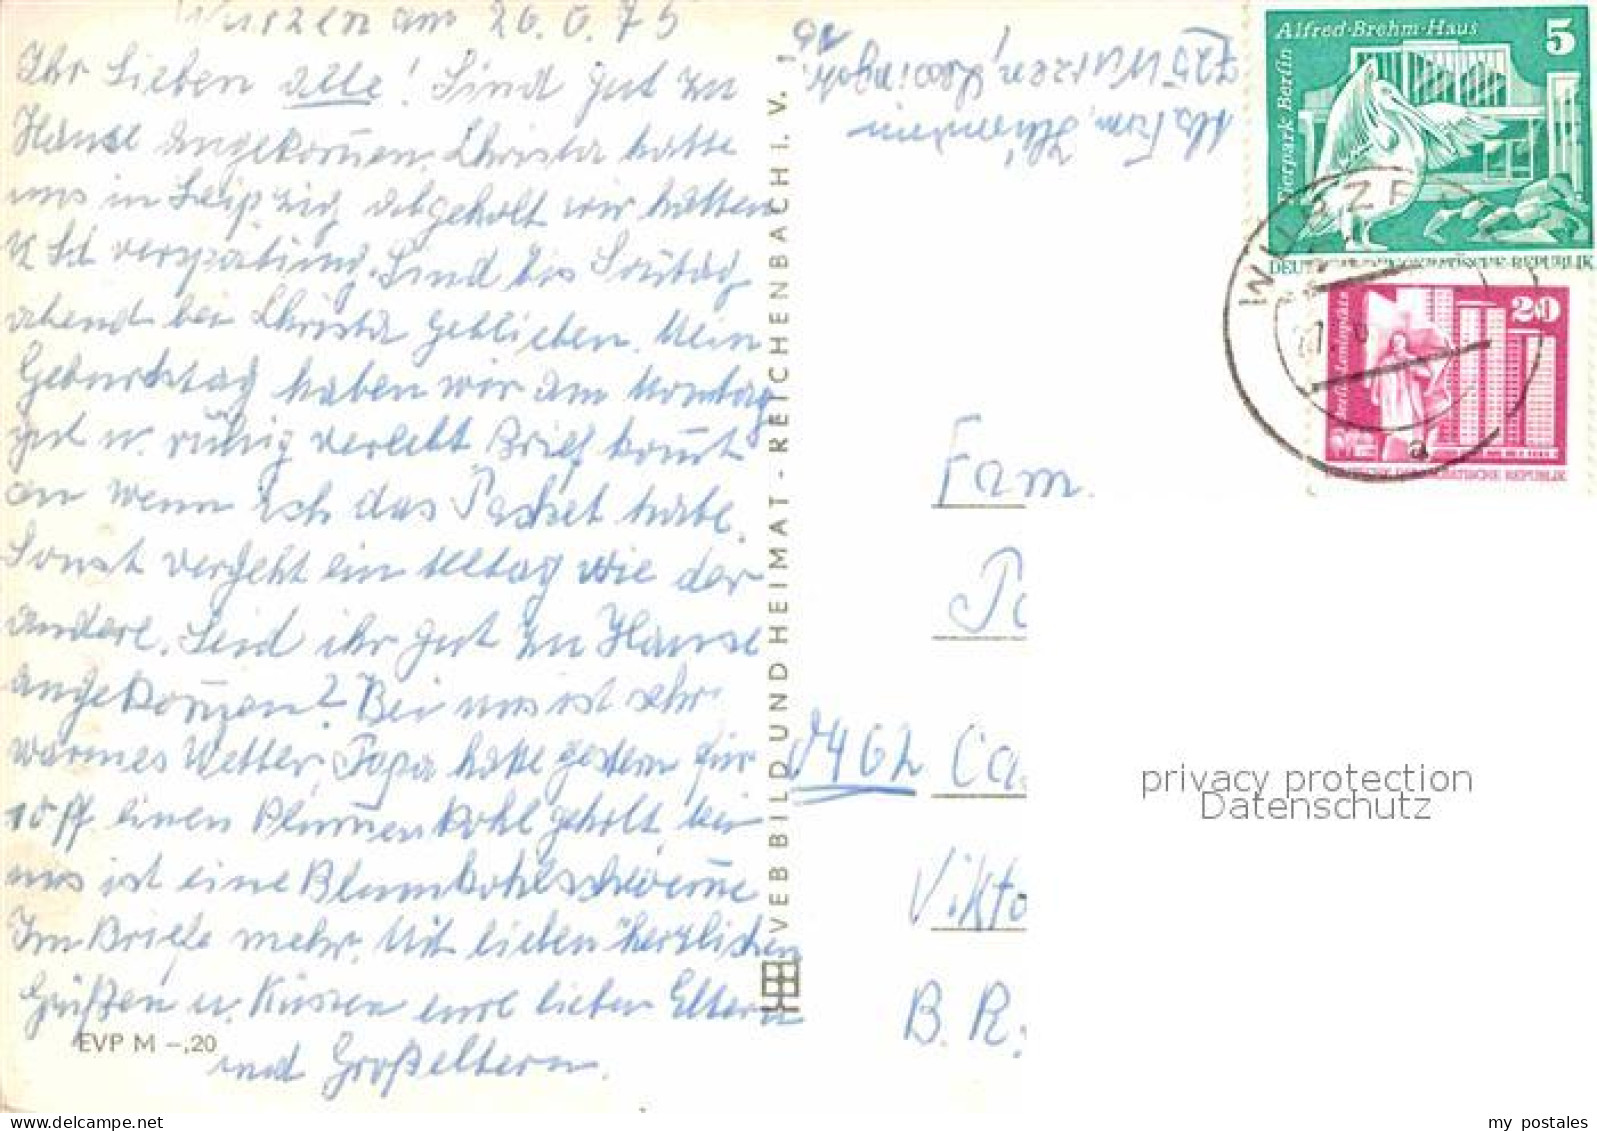 Wurzen am 26.6.75
Ihr Lieben alle! Sind gut zu
Hause angekom̅en. Christa hatte
uns in Leipzig abgeholt wir hatten
Std verspätung. Sind bis Sontag
abend bei Christa geblieben. Mein
Geburtstag haben wir am Montag
gut u. ruhig verlebt Brief kom̅t
an wenn ich das Packet habe.
Sonst vergeht ein Alltag wie der
andere. Seid ihr gut zu Hause
angekom̅en? Bei uns ist sehr
warmes Wetter, Papa hatte gestern für
10 Pf einen Blumenkohl geholt, bei
uns ist eine Blumkohlschwem̅e
Im Briefe mehr. Mit lieben herzlichen
Grüßen u. Küssen eure lieben Eltern
und Großeltern.
EVP M –,20
VEB BILD UND HEIMAT · REICHENBACH I. V.
Abs Fam.
725 Wurzen,
Alfred-Brehm-Haus
5
Tierpark Berlin
DEUTSCHE DEMOKRATISCHE REPUBLIK
20
DEUTSCHE DEMOKRATISCHE REPUBLIK
WURZEN
a
Fam.
D462 Ca
Vikto
B. R.
privacy protection
Datenschutz
my postales